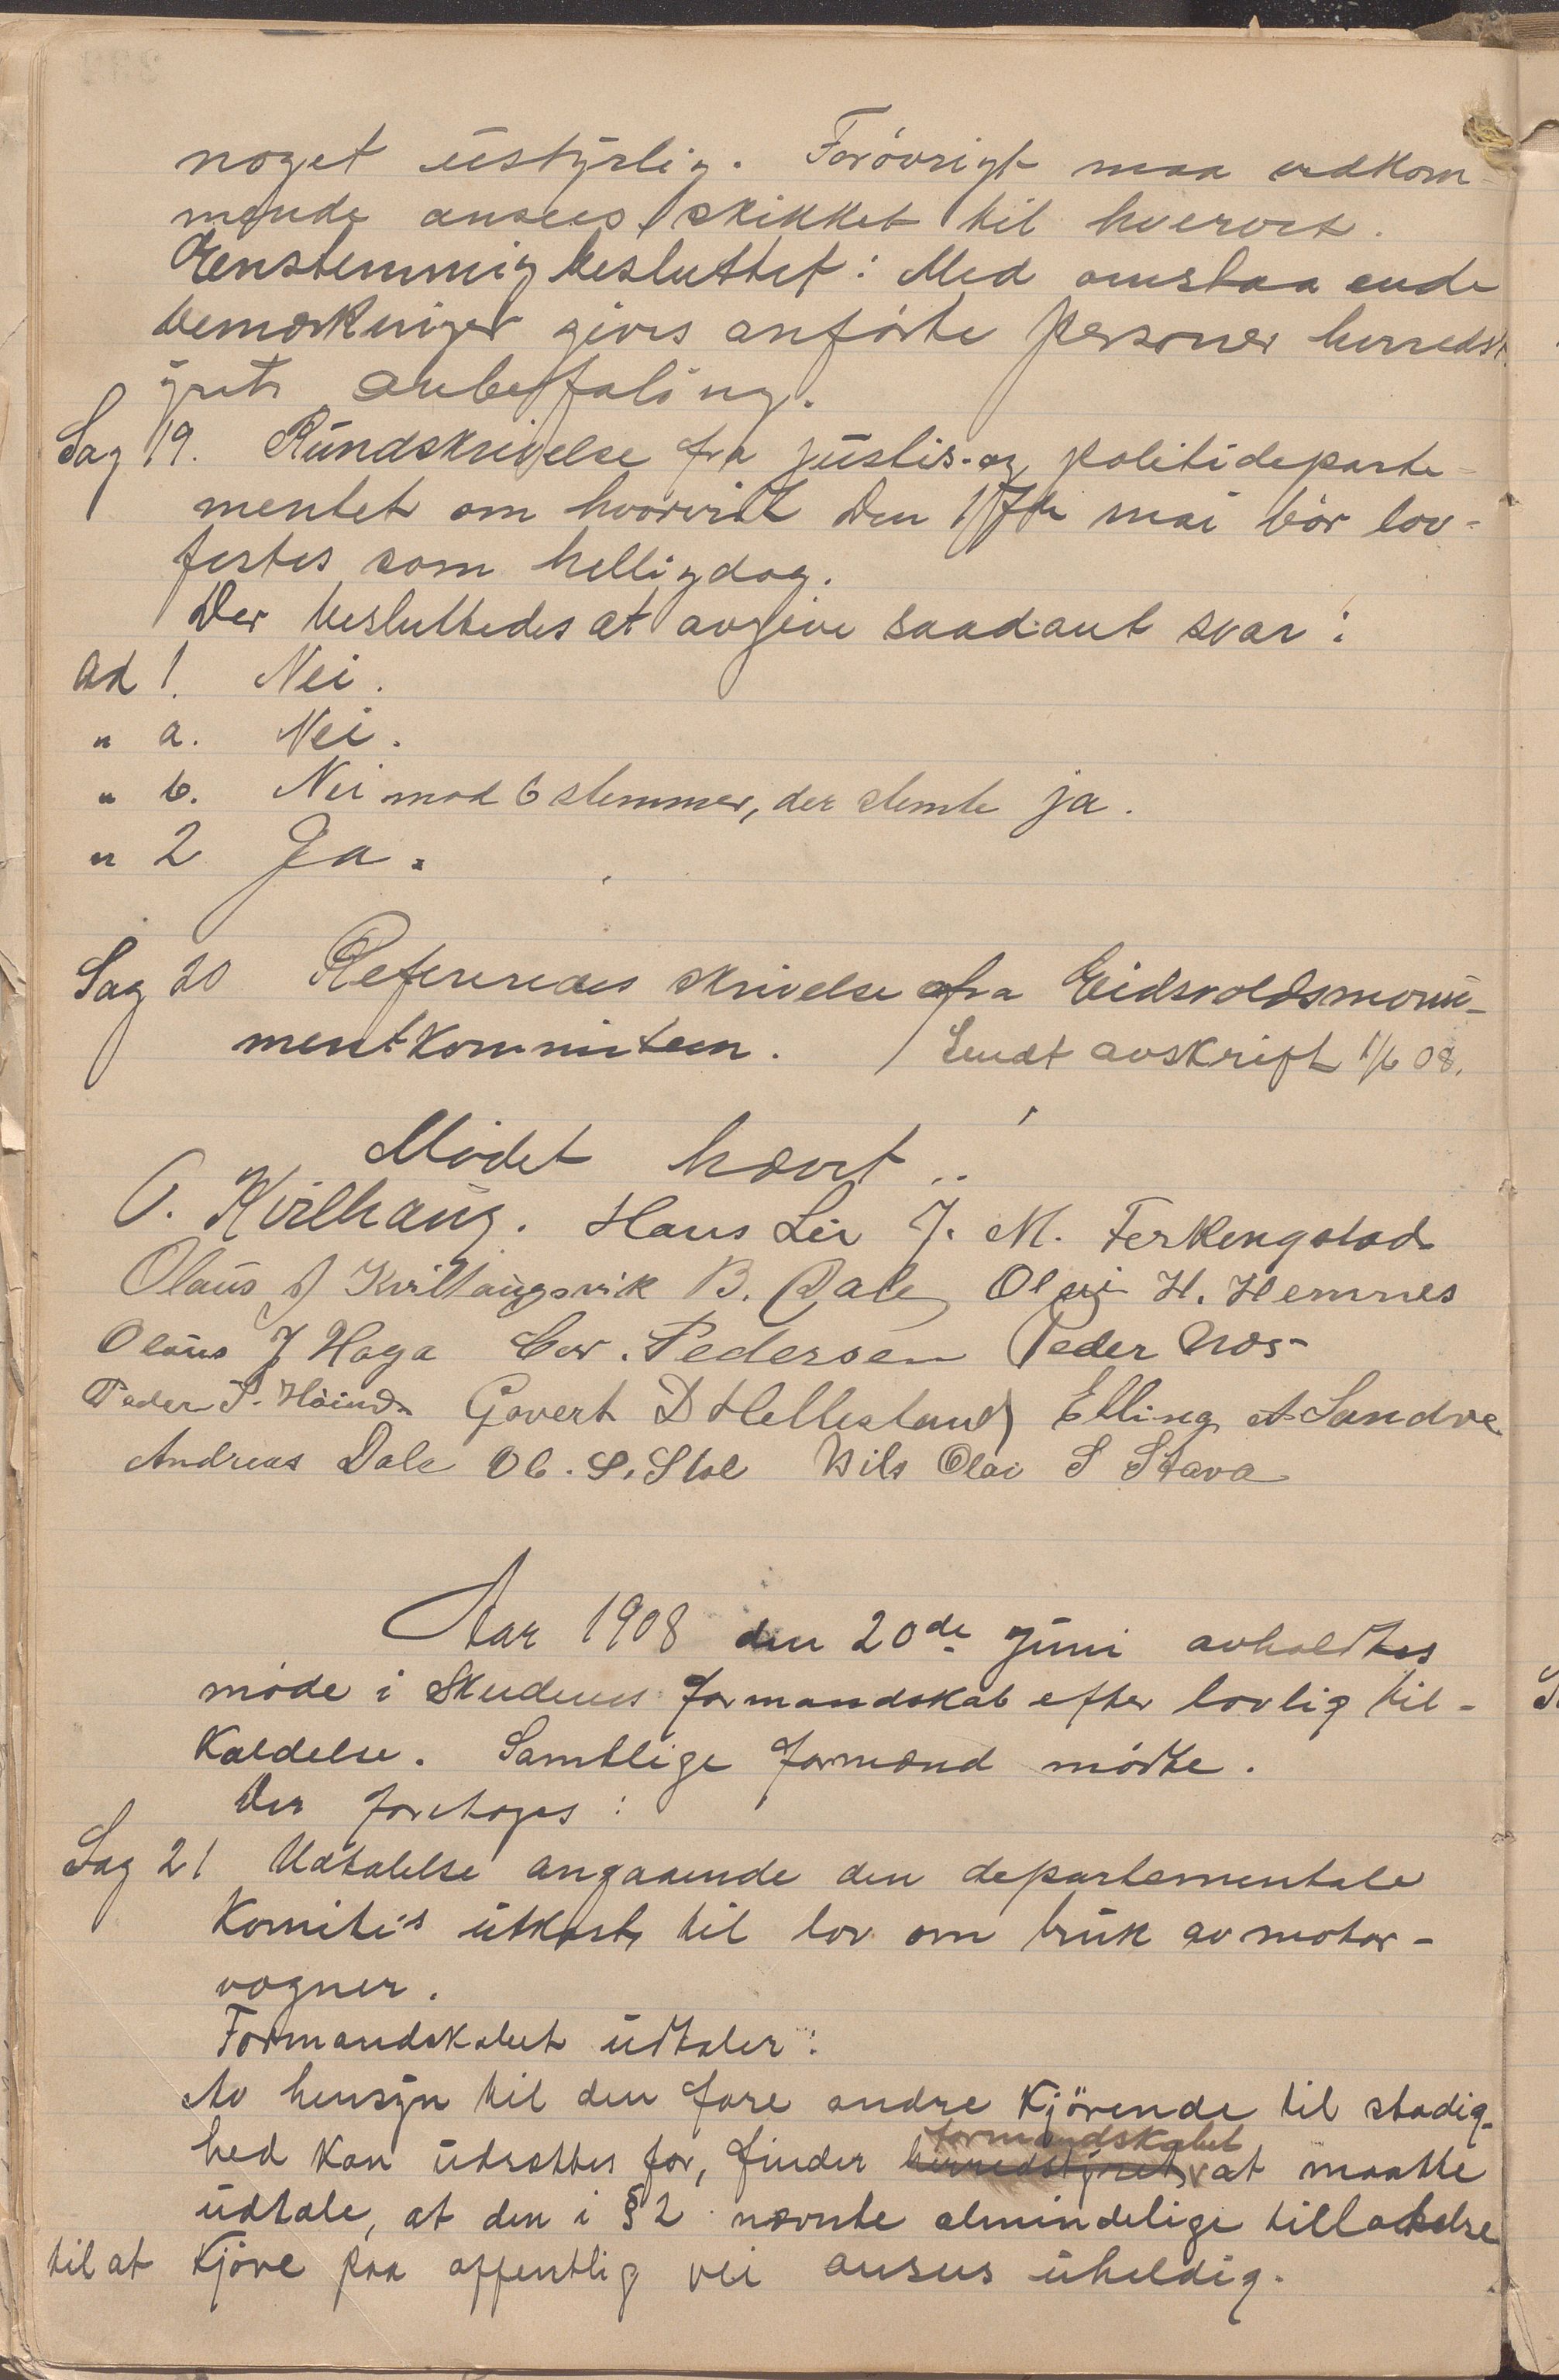 noget ustyrlig. Forøvrigt maa vedkom-
mende ansees skikket til hvervet.
Eenstemmig besluttet: Med omstaaende
bemerkninger gives anførte personer herredst.
yrets anbefaling.
Sag 19. Rundskrivelse fra justis- og politideparte-
mentet om hvorvidt den 17de mai bør lov-
festes som helligdag.
Der besluttedes at avgive saadant svar:
ad 1. Nei.
" a. Nei.
" b. Nei mod 6 stemmer, der stemte ja.
" 2 Ja.
Sag 20 Refereredes skrivelse fra Eidsvoldsmonu-
mentkommiteen. / Sendt avskrift 1/6 08.
Mødet hævet.
O. Kvilhaug. Hans Lie J. M. Ferkengstad
Olaus J Kvilhaugsvik B. Dale Olai H. Hemnes
Olaus J Haga Cor. Pedersen Peder Næs
Peder P. Høinds Govert D Hellesland Elling A Sandve
Andreas Dale Ol. S. Stol Nils Olai S Stava
Aar 1908 den 20de juni avholdtes
møde i Skudenes formandskab efter lovlig til-
kaldelse. Samtlige formænd mødte.
Der foretoges:
Sag 21 Udtalelse angaaende den departementale
komite's utkast til lov om bruk av motor-
vogner.
Formandskabet udtaler:
Av hensyn til den fare andre kjørende til stadig-
hed kan utsættes for, finder herredstyret formandskabet at maatte
udtale, at den i § 2 nævnte almindelige tilladelse
til at kjøre paa offentlig vei ansees uheldig.